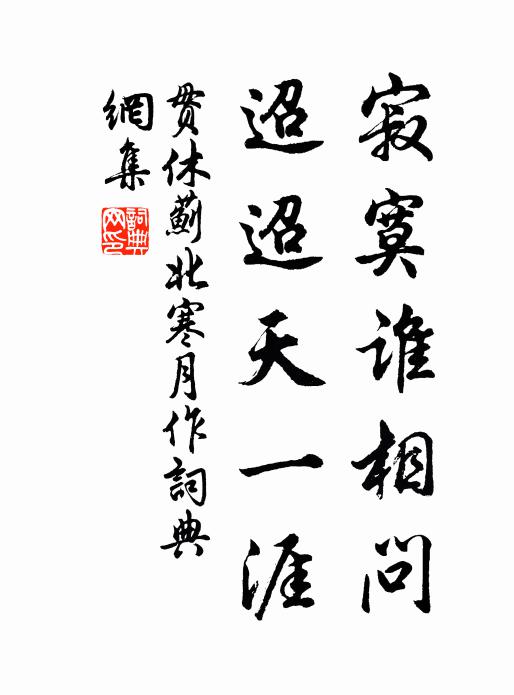 寂寞谁相问
迢迢天一涯
贯休蓟北寒月作詞典
網集
詞典网印